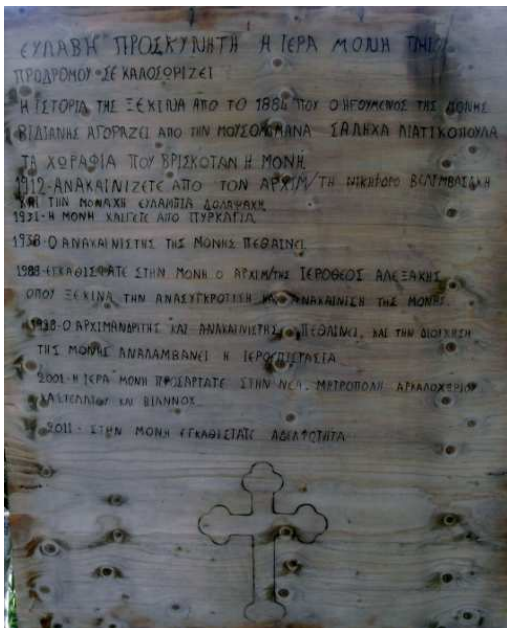 ΕΥΛΑΒΗ ΠΡΟΣΚΥΝΗΤΗ Η ΙΕΡΑ ΜΟΝΗ ΤΙΜΙΟΥ
ΠΡΟΔΡΟΜΟΥ ΣΕ ΚΑΛΟΣΩΡΙΖΕΙ
Η ΙΣΤΟΡΙΑ ΤΗΣ ΞΕΚΙΝΑ ΑΠΟ ΤΟ 1884 ΠΟΥ Ο ΗΓΟΥΜΕΝΟΣ ΤΗΣ ΜΟΝΗΣ
ΒΙΔΙΑΝΗΣ ΑΓΟΡΑΖΕΙ ΑΠΟ ΤΗΝ ΜΟΥΣΟΛΟΜΑΝΑ ΣΑΛΗΧΑ ΛΙΑΤΙΚΟΠΟΥΛΑ
ΤΑ ΧΩΡΑΦΙΑ ΠΟΥ ΒΡΙΣΚΟΤΑΝ Η ΜΟΝΗ
1912-ΑΝΑΚΑΙΝΙΖΕΤΕ ΑΠΟ ΤΟΝ ΑΡΧΙΜ/ΤΗ ΝΙΚΗΦΟΡΟ
ΚΑΙ ΤΗΝ ΜΟΝΑΧΗ ΕΥΛΑΜΠΙΑ
1931-Η ΜΟΝΗ ΚΑΙΓΕΤΕ ΑΠΟ ΠΥΡΚΑΓΙΑ
1938-Ο ΑΝΑΚΑΙΝΙΣΤΗΣ ΤΗΣ ΜΟΝΗΣ ΠΕΘΑΙΝΕΙ
ΕΓΚΑΘΙΣΤΑΤΕ ΣΤΗΝ ΜΟΝΗ Ο ΑΡΧΙΜ/ΤΗΣ ΙΕΡΟΘΕΟΣ ΑΛΕΞΑΚΗΣ
ΟΠΟΥ ΞΕΚΙΝΑ ΤΗΝ ΑΝΑΣΥΓΚΡΟΤΙΣΗ ΚΑΙ ΑΝΑΚΑΙΝΙΣΗ ΤΗΣ ΜΟΝΗΣ.
Ο ΑΡΧΙΜΑΝΔΡΙΤΗΣ ΚΑΙ ΑΝΑΚΑΙΝΙΣΤΗΣ ΠΕΘΑΙΝΕΙ, ΚΑΙ ΤΗΝ ΔΙΟΙΚΗΣΗ
ΤΗΣ ΜΟΝΗΣ ΑΝΑΛΑΜΒΑΝΕΙ Η ΙΕΡΟΕΠΙΣΤΑΣΙΑ
2001-Η ΙΕΡΑ ΜΟΝΗ ΠΡΟΣΑΡΤΑΤΕ ΣΤΗΝ ΝΕΑ ΜΗΤΡΟΠΟΛΗ ΑΡΚΑΛΟΧΩΡΙΟΥ
ΚΑΣΤΕΛΛΙΟΥ ΚΑΙ ΒΙΑΝΝΟΥ
2011-ΣΤΗΝ ΜΟΝΗ ΕΓΚΑΘΙΣΤΑΤΕ ΑΔΕΛΦΟΤΗΤΑ